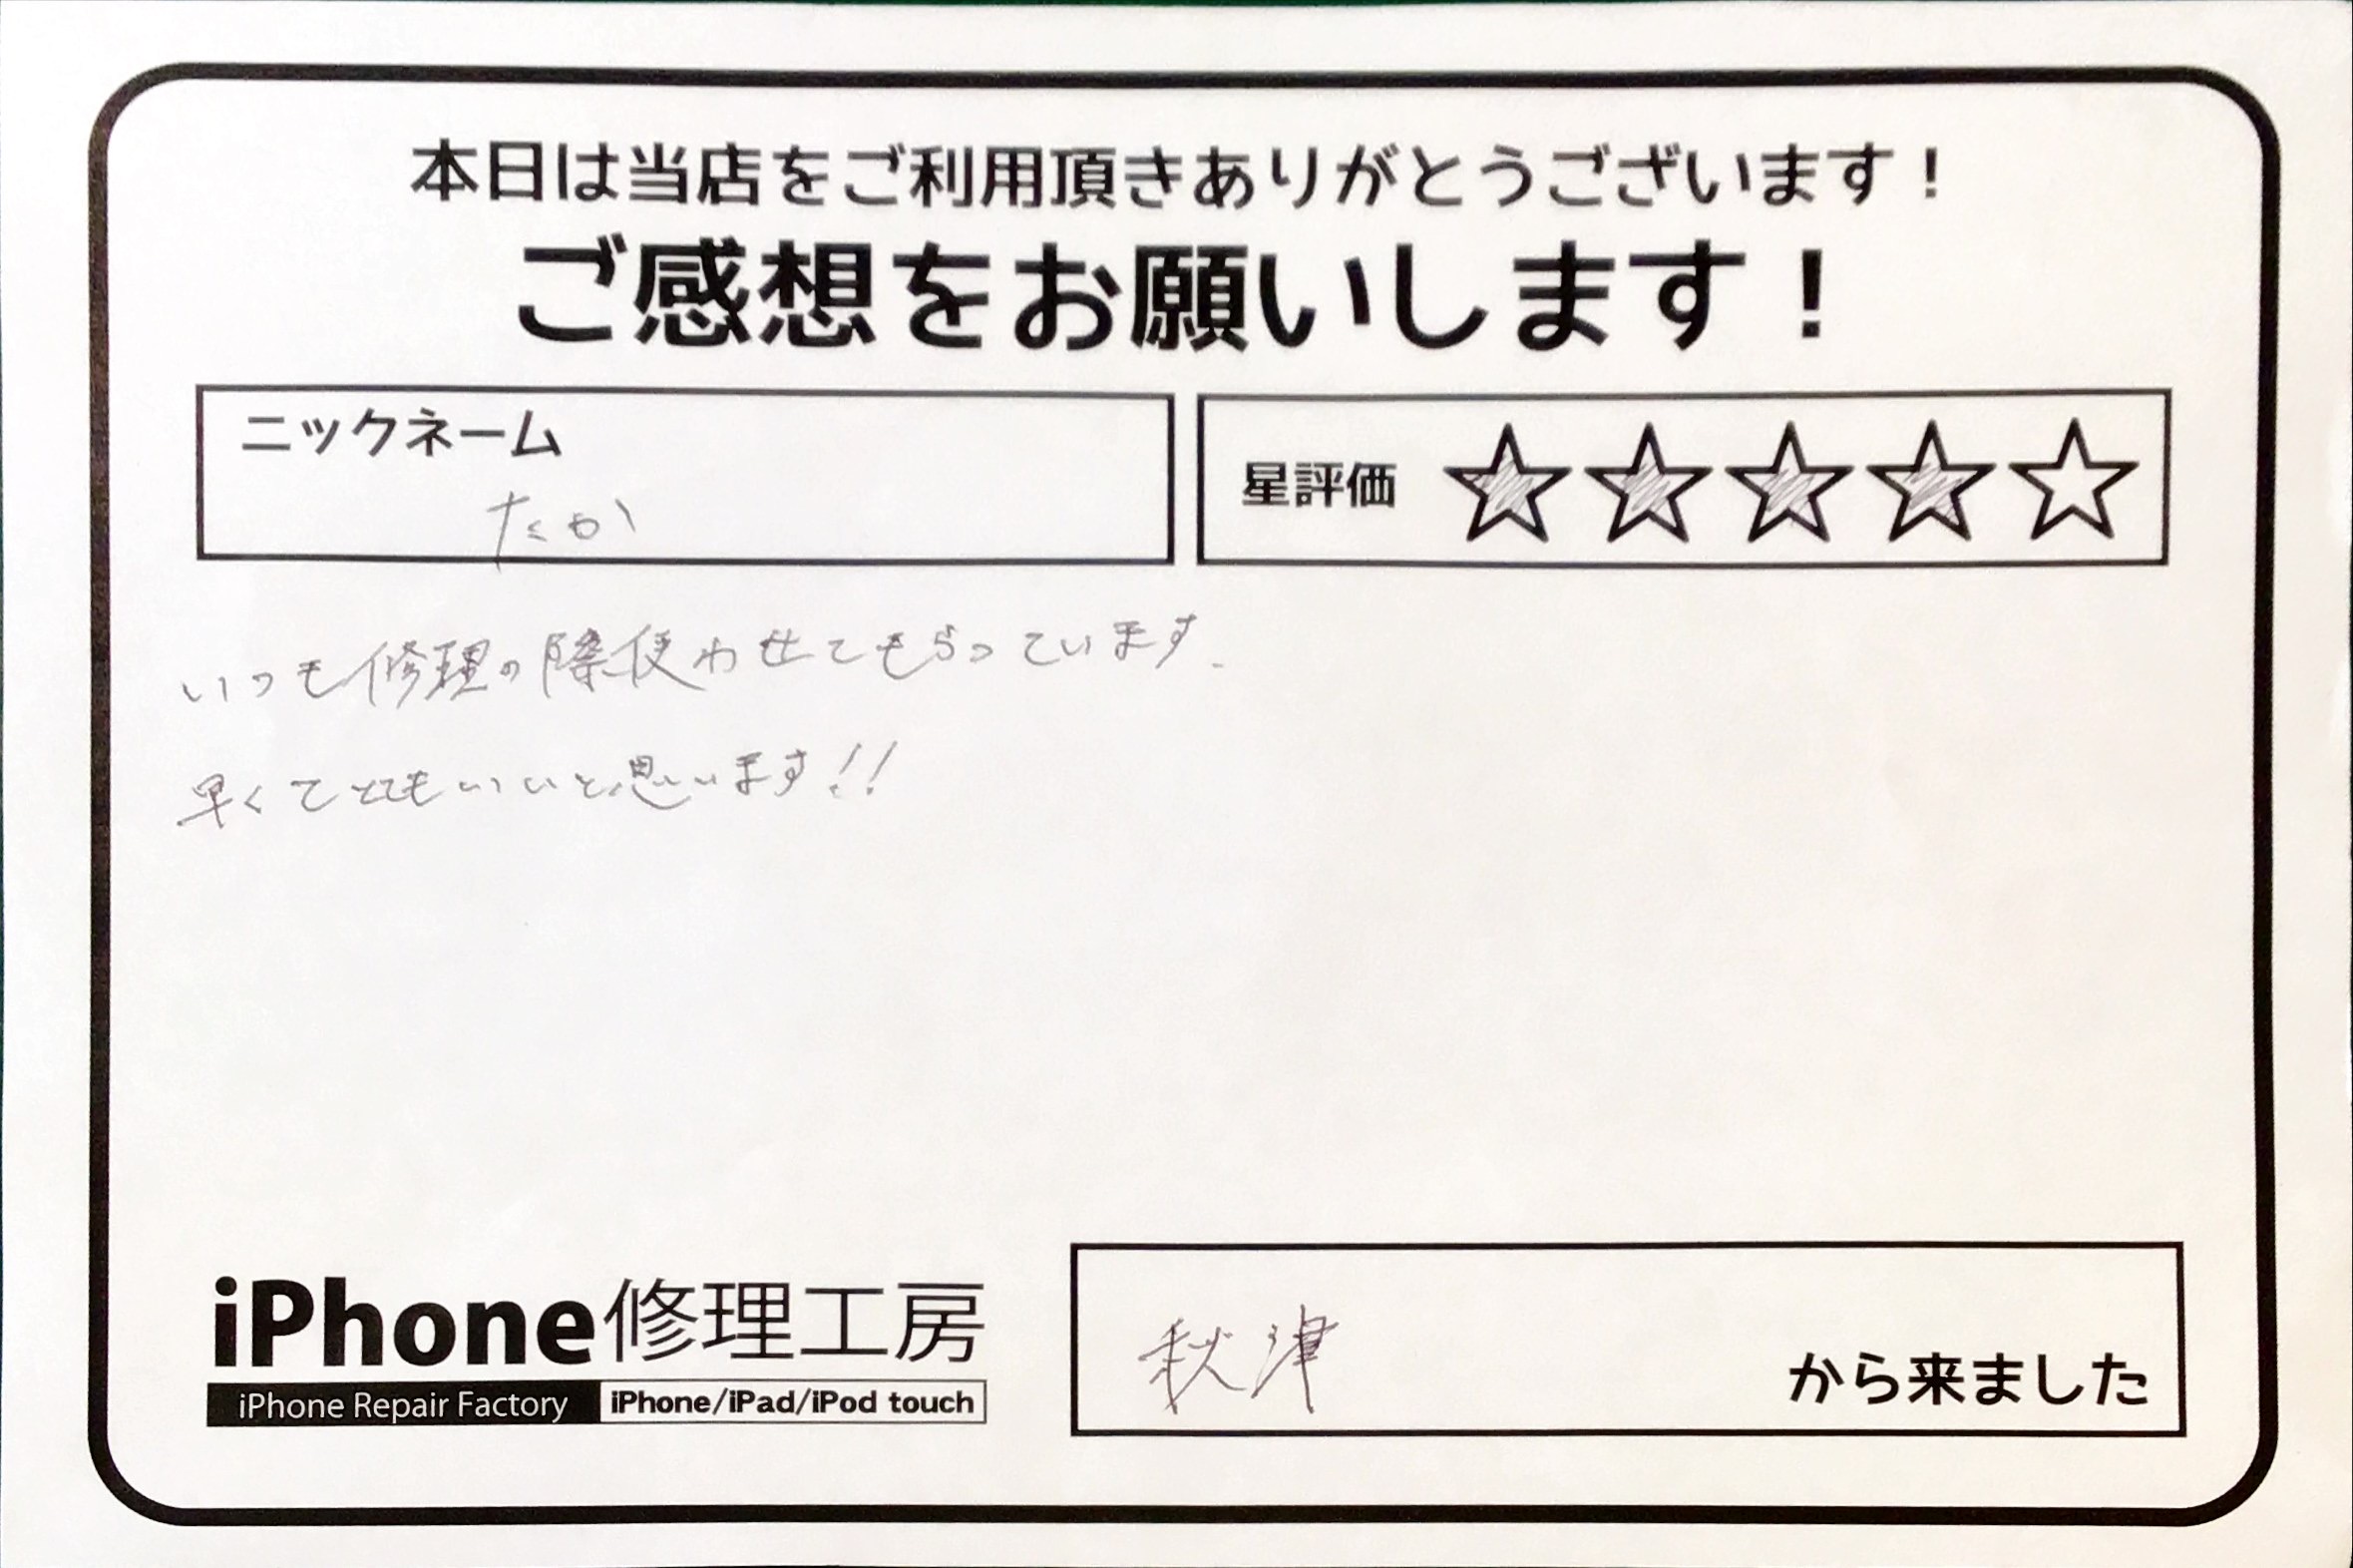 本日は当店をご利用頂きありがとうございます！
ご感想をお願いします！
ニックネーム
たか
星評価 ★★★★☆
いつも修理の際使わせてもらっています.
早くてとてもいいと思います!!
iPhone修理工房
iPhone Repair Factory iPhone/iPad/iPod touch
秋津
から来ました